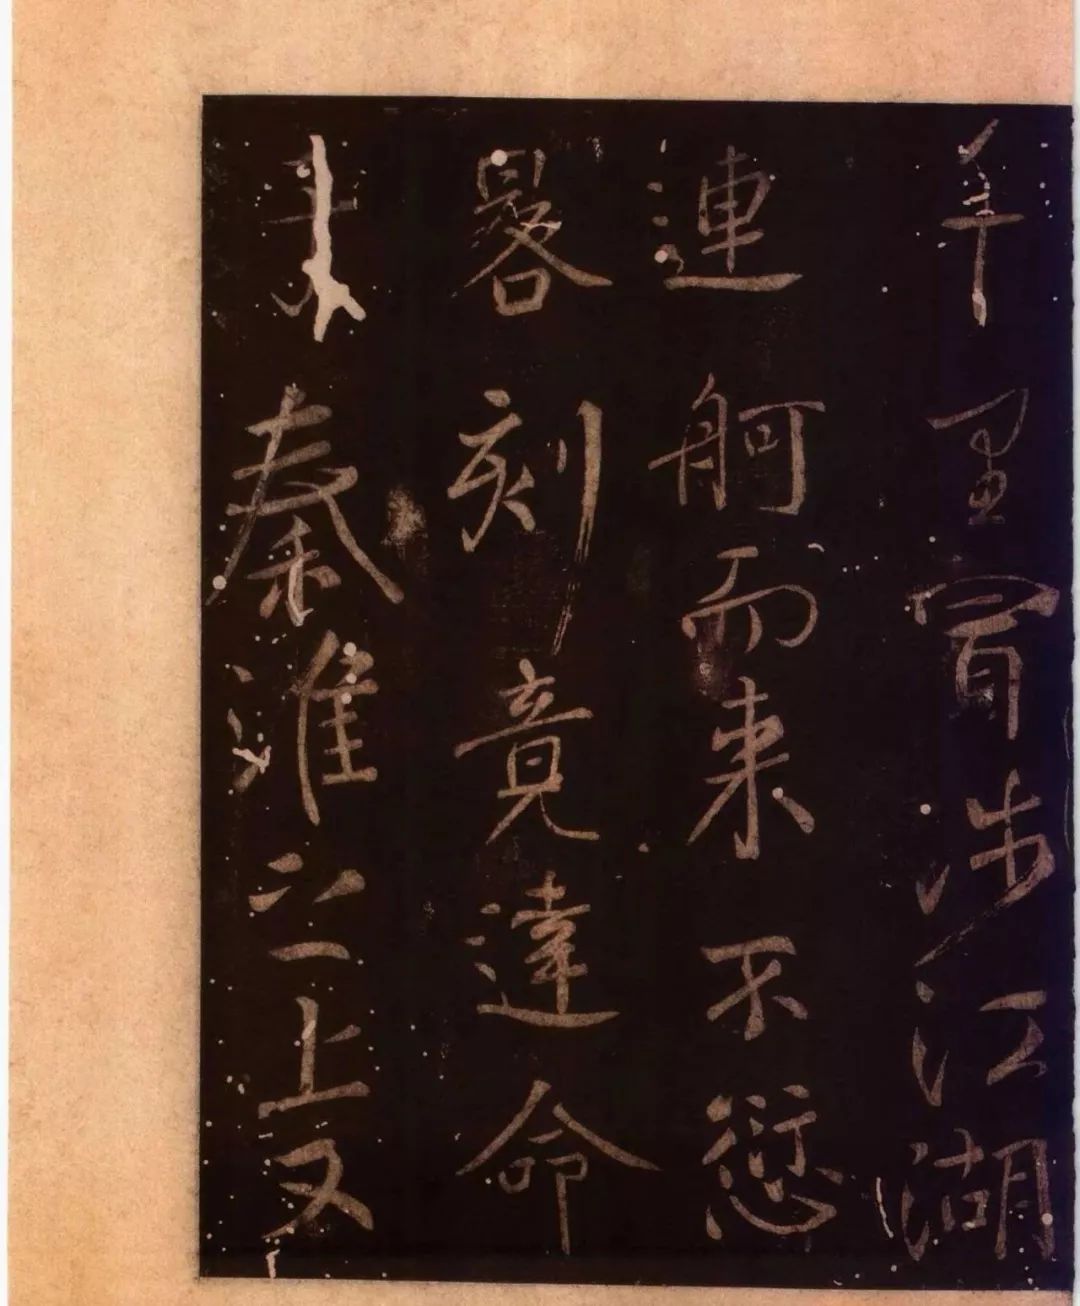 千里冒涉江湖
連舸而來不愆
晷刻竟達命
秦淮之上又